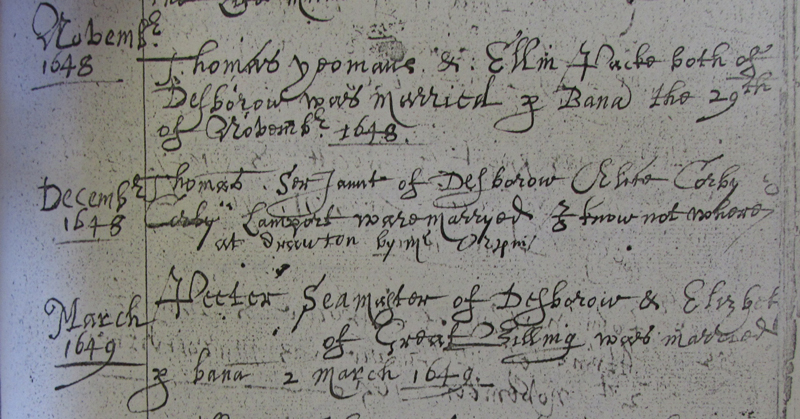 Novembr
1648
Thomas yeomans & Ellin Packe both of
Desborow was Married p Bana the 29th
of Novembr 1648.
Decembr
1648
Thomas Serjaunt of Desborow Corby
Corby Lamport ware marryed I know not where
at drawton by mr
March
1649
Peeter Seamaster of Desborow & Elizbet
of Great was married
p bana 2 march 1649.